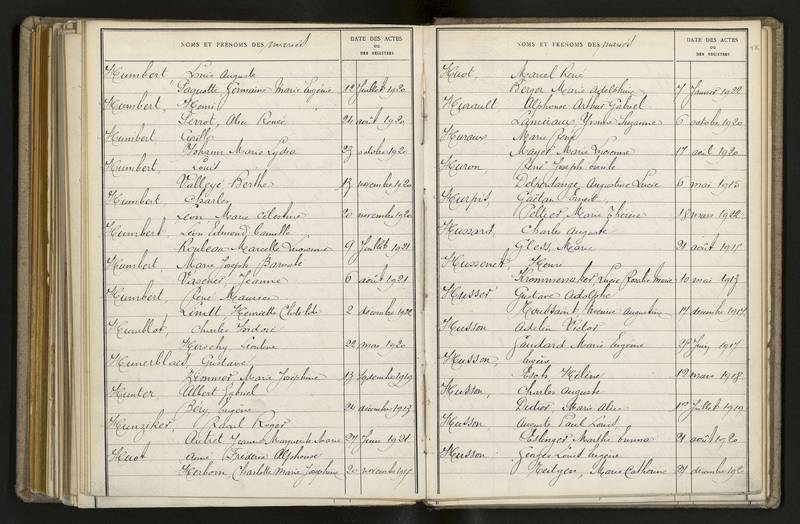 NOMS ET PRÉNOMS DES mariés
DATE DES ACTES
OU
DES REGISTRES
Humbert Louis Auguste
Paquotte Germaine Marie Eugénie 12 Juillet 1920
Humbert, Henri
Perrot, Alice Renée 21 août 1920
Humbert Camille
Johann Marie Lydia 23 octobre 1920
Humbert, Louis
Valleye Berthe 13 novembre 1920
Humbert, Charles
Léon, Marie Célestine 20 novembre 1920
Humbert, Léon Edmond Camille
Rouleau Marcelle 9 Juillet 1921
Humbert, Marie Joseph Barnabé
Vascher Jeanne 6 août 1921
Humbert, René Maurice
Henriette Clotilde 2 décembre 1922
Humblot, Charles Isidore
22 mai 1920
Hunerblaes Gustave
Marie Joséphine 13 Septembre 1919
Hunter Albert Gabriel
Béry Eugénie 26 décembre 1913
Hunziker, Raoul Roger
Autret Jeanne Marguerite Marie 1921
Huot Aimé Frédéric Alphonse
Herborn Charlotte Marie Joséphine 20 novembre 1917
NOMS ET PRÉNOMS DES mariés
DATE DES ACTES
OU
DES REGISTRES
Huot, Marcel René
Berger Marie Adolphine 7 Janvier 1922
Hurault Alphonse Arthur Gabriel
Yvonne Suzanne 6 octobre 1920
Huraux Marie René
Mayer Marie 17 avril 1920
Huron, René Joseph
Augustine Lucie 6 mai 1915
Gaëtan Ernest
Peltier Marie Thérèse 18 mars 1922
Hussard, Charles Auguste
Gless, Marie 21 août 1915
Hussenet, Henri
Krommenaker Lucie Marie 10 mai 1913
Husser Gustave Adolphe
Augustine 17 décembre 1914
Husson Victor
Gaudard Marie Eugénie 1917
Husson, Eugène
Esch, Hélène 12 mars 1918
Husson, Charles Auguste
Didier, Marie Alice 1er Juillet 1919
Husson Auguste Paul Louis
Eslinger Marthe Emma 21 août 1920
Husson Georges Louis Eugène
Heitgen, Marie Catherine 29 décembre 1920